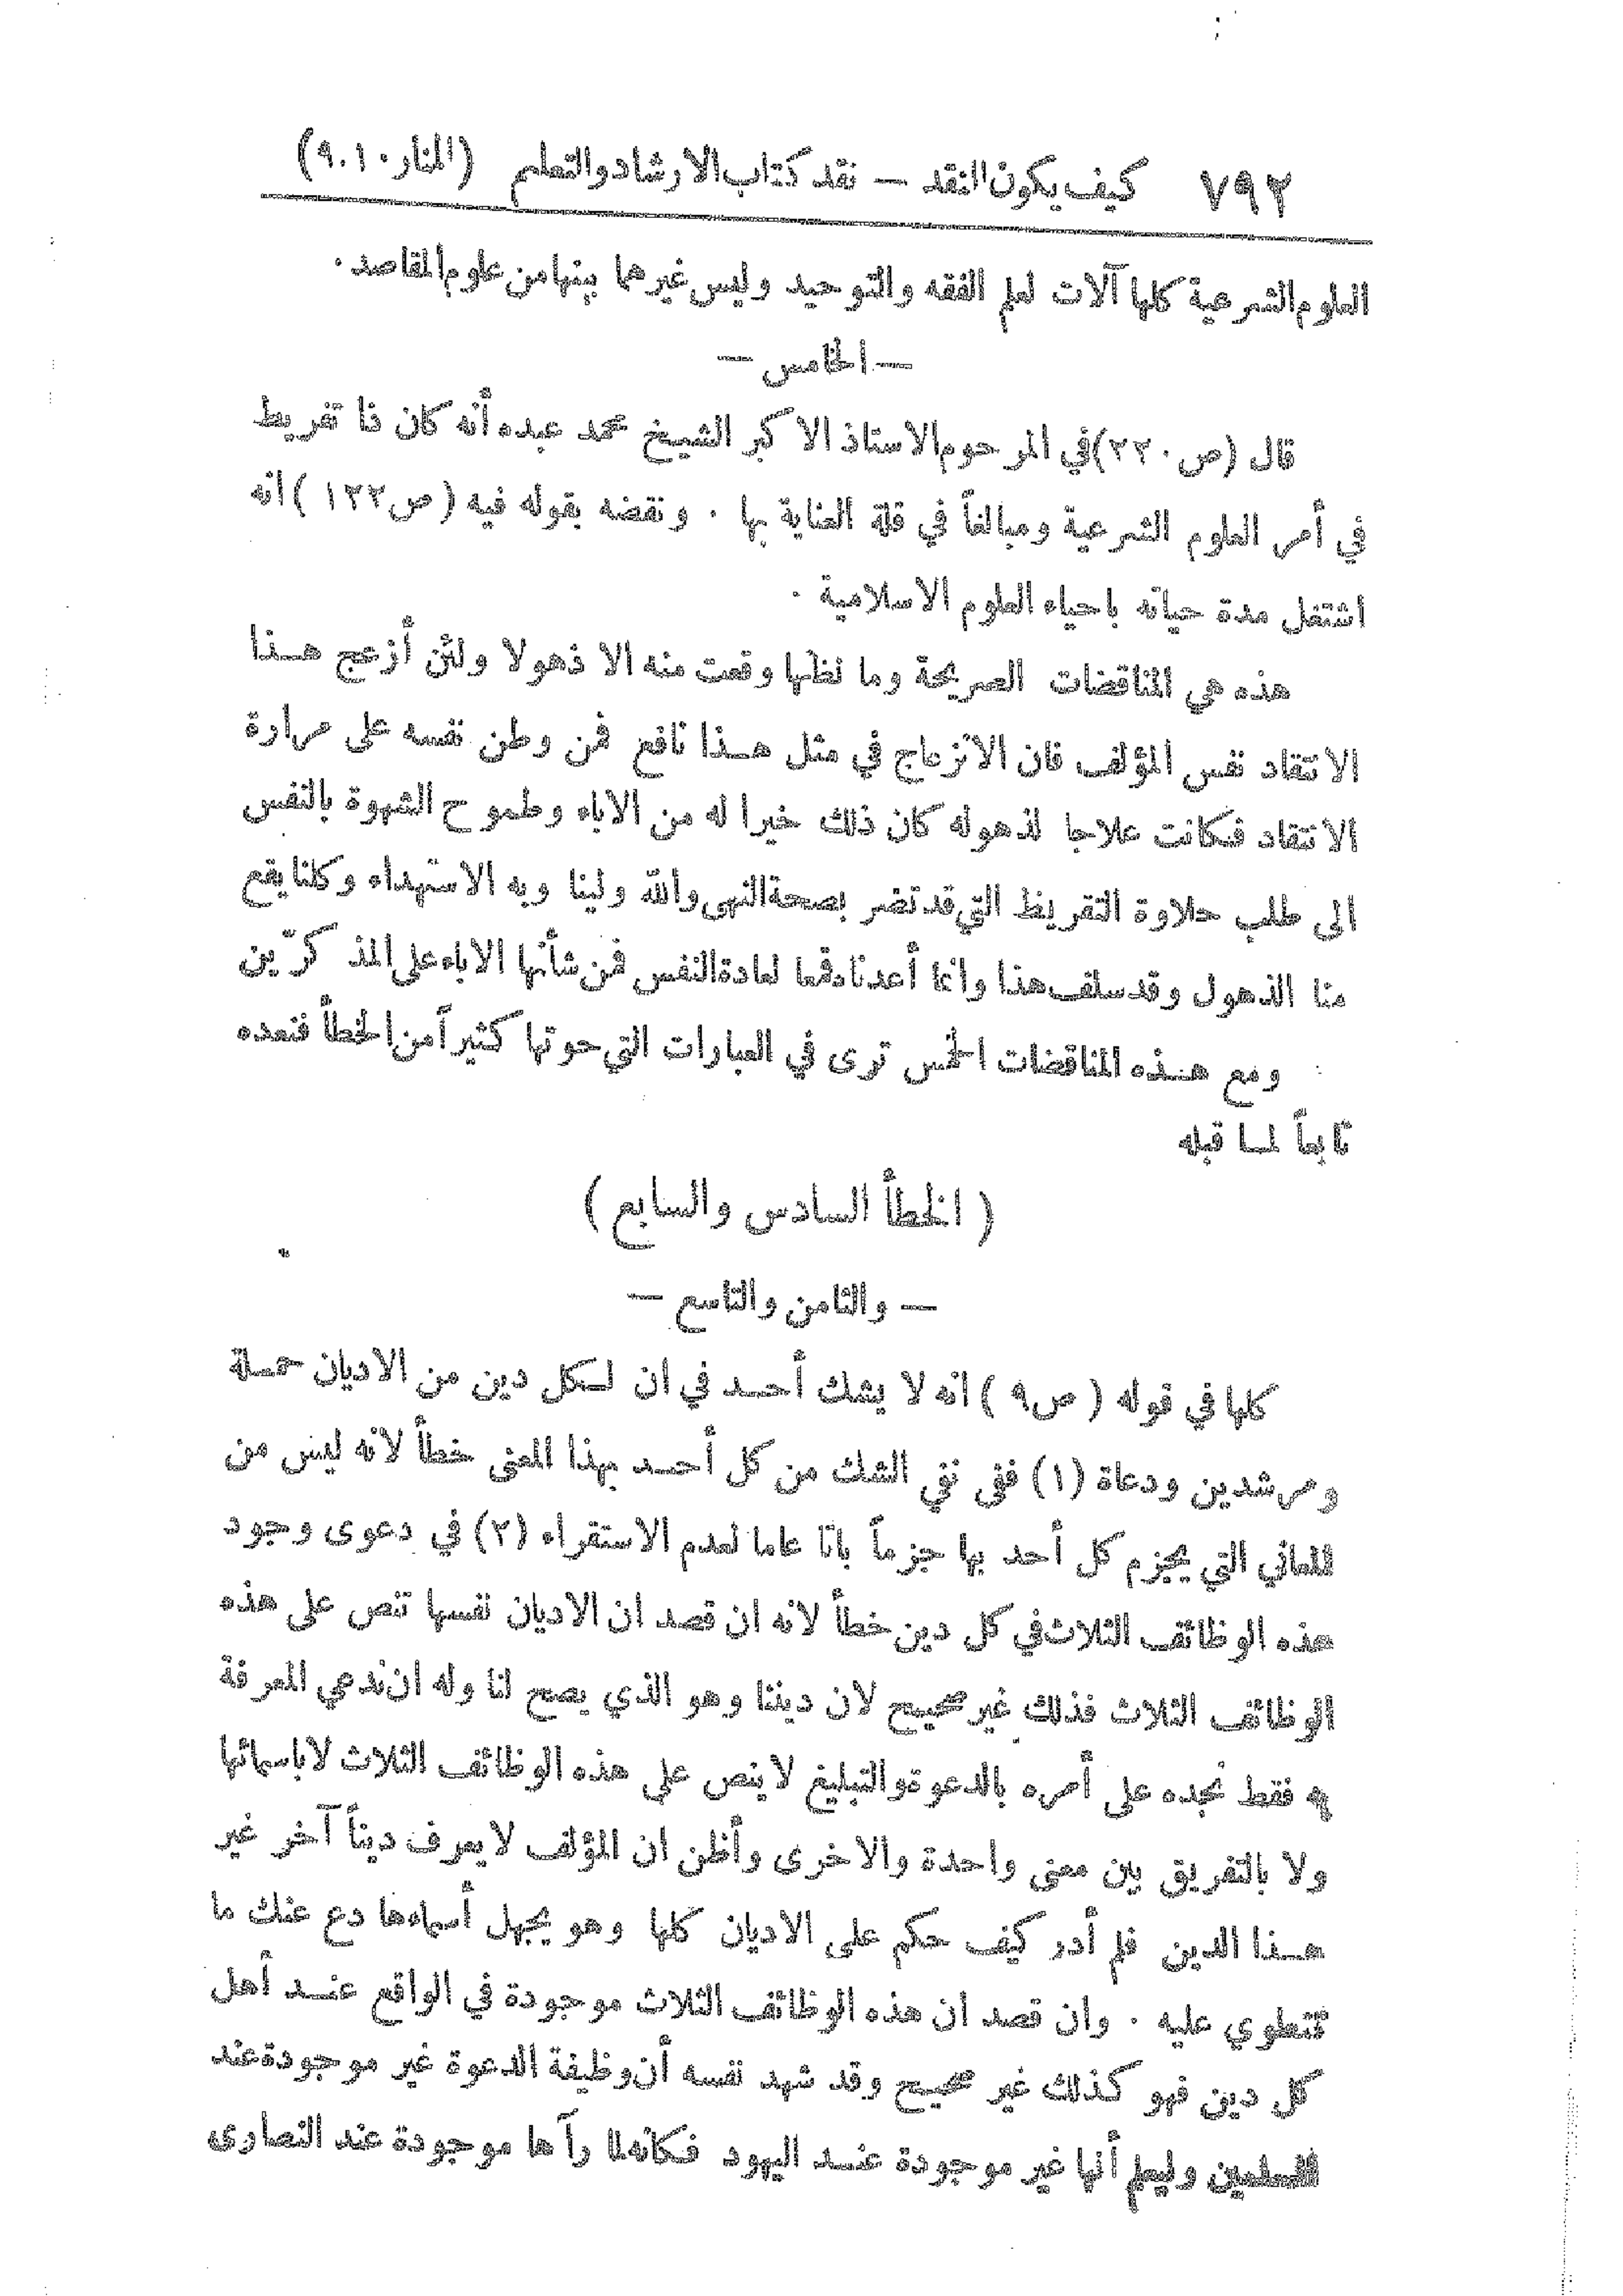 ٧٩٢ كيف يكون النقد — نقد كتاب الارشاد والتعليم (المنار ١٠ . ٩)
العلوم الشرعية كلها آلات لعلم الفقه والتوحيد وليس غيرهما بينها من علوم المقاصد ٠
— الخامس —
قال (ص ٢٢٠) في المرحوم الاستاذ الاكبر الشيخ محمد عبده أنه كان ذا تفريط
في أمر العلوم الشرعية ومبالغاً في قلة العناية بها ٠ ونقضه بقوله فيه (ص ١٢٢) انه
اشتغل مدة حياته باحياء العلوم الاسلامية ٠
هذه هي المناقضات الصريحة وما نظنها وقعت منه الا ذهولا ولئن أزعج هذا
الانتقاد نفس المؤلف فان الانزعاج في مثل هذا نافع فمن وطن نفسه على مرارة
الانتقاد فكانت علاجا لذهوله كان ذلك خيرا له من الاباء وطموح الشهوة بالنفس
الى طلب حلاوة التقريظ التي قد تضر بصحة النهى والله ولينا وبه الاستهداء وكلنا يقع
منا الذهول وقد سلف هذا وانما أعدناه قمعا لعادة النفس فمن شأنها الاباء على المذكرّين
ومع هذه المناقضات الخمس ترى في العبارات التي حوتها كثيراً من الخطأ فنعده
تابعاً لما قبله
(الخطأ السادس والسابع)
— والثامن والتاسع —
كلها في قوله (ص ٩) انه لا يشك أحد في ان لكل دين من الاديان حملة
ومرشدين ودعاة (١) ففي نفي الشك من كل أحد بهذا المعنى خطأ لانه ليس من
المعاني التي يجزم كل أحد بها جزماً باتا عاما لعدم الاستقراء (٢) في دعوى وجود
هذه الوظائف الثلاث في كل دين خطأ لانه ان قصد ان الاديان نفسها تنص على هذه
الوظائف الثلاث فذلك غير صحيح لان ديننا وهو الذي يصح لنا وله ان ندعي المعرفة
به فقط نجده على أمره بالدعوة والتبليغ لا ينص على هذه الوظائف الثلاث لا باسمائها
ولا بالتفريق بين معنى واحدة والاخرى وأظن ان المؤلف لا يعرف ديناً آخر غير
هذا الدين فلم أدر كيف حكم على الاديان كلها وهو يجهل أسماءها دع عنك ما
تنطوي عليه ٠ وان قصد ان هذه الوظائف الثلاث موجودة في الواقع عند أهل
كل دين فهو كذلك غير صحيح وقد شهد نفسه أن وظيفة الدعوة غير موجودة عند
المسلمين وليعلم أنها غير موجودة عند اليهود فكانه لما رآها موجودة عند النصارى